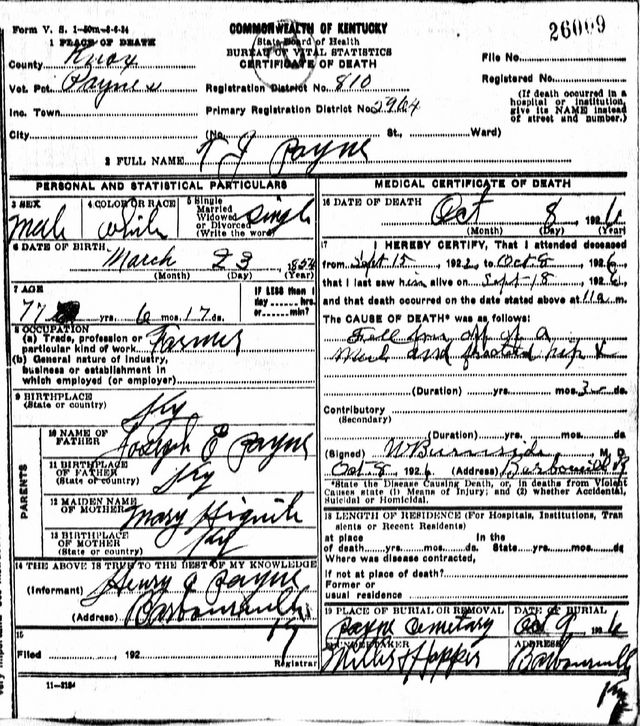 Form V. S. 1-50m-6-6-24
COMMONWEALTH OF KENTUCKY
State Board of Health
BUREAU OF VITAL STATISTICS
CERTIFICATE OF DEATH
26009
1 PLACE OF DEATH
County Knox
Vot. Pct. Paynes
Inc. Town
City
Registration District No. 810
Primary Registration District No. 2964
(No. St., Ward)
File No.
Registered No.
(If death occurred in a
hospital or institution,
give its NAME instead
of street and number.)
2 FULL NAME T J Payne
PERSONAL AND STATISTICAL PARTICULARS
3 SEX
Male
4 COLOR OR RACE
White
5 Single
Married
Widowed
or Divorced
(Write the word)
Single
6 DATE OF BIRTH
March 23 1854
(Month) (Day) (Year)
7 AGE
77 yrs. 6 mos. 17 ds.
IF LESS than 1
day hrs.
or min?
8 OCCUPATION
(a) Trade, profession or
particular kind of work Farmer
(b) General nature of industry,
business or establishment in
which employed (or employer)
9 BIRTHPLACE
(State or country) Ky
PARENTS
10 NAME OF
FATHER Joseph E Payne
11 BIRTHPLACE
OF FATHER
(State or country) Ky
12 MAIDEN NAME
OF MOTHER Mary
13 BIRTHPLACE
OF MOTHER
(State or country) Ky
14 THE ABOVE IS TRUE TO THE BEST OF MY KNOWLEDGE
(Informant) Henry Payne
(Address) Barbourville
Ky
15
Filed , 192
Registrar
11-3184
MEDICAL CERTIFICATE OF DEATH
16 DATE OF DEATH
Oct 8, 1926
(Month) (Day) (Year)
17 I HEREBY CERTIFY, That I attended deceased
from Sept 15, 192 to Oct 8, 1926
that I last saw him alive on Sept 18, 1926
and that death occurred on the date stated above at 11 a m.
The CAUSE OF DEATH* was as follows:
Fell from off of a
Mule and hip &
(Duration) yrs. mos. ds.
Contributory
(Secondary)
(Duration) yrs. mos. ds.
(Signed) Burnside M. D.
Oct 8, 1926 (Address) Barbourville Ky
*State the Disease Causing Death, or, in deaths from Violent
Causes state (1) Means of Injury; and (2) whether Accidental,
Suicidal or Homicidal.
18 LENGTH OF RESIDENCE (For Hospitals, Institutions, Tran
sients or Recent Residents)
at place In the
of death yrs. mos. ds. State yrs. mos. ds.
Where was disease contracted,
if not at place of death?
Former or
usual residence
19 PLACE OF BURIAL OR REMOVAL
Payne Cemetary
DATE OF BURIAL
Oct 9 1926
UNDERTAKER
Hopper
ADDRESS
Barbourville
Ky